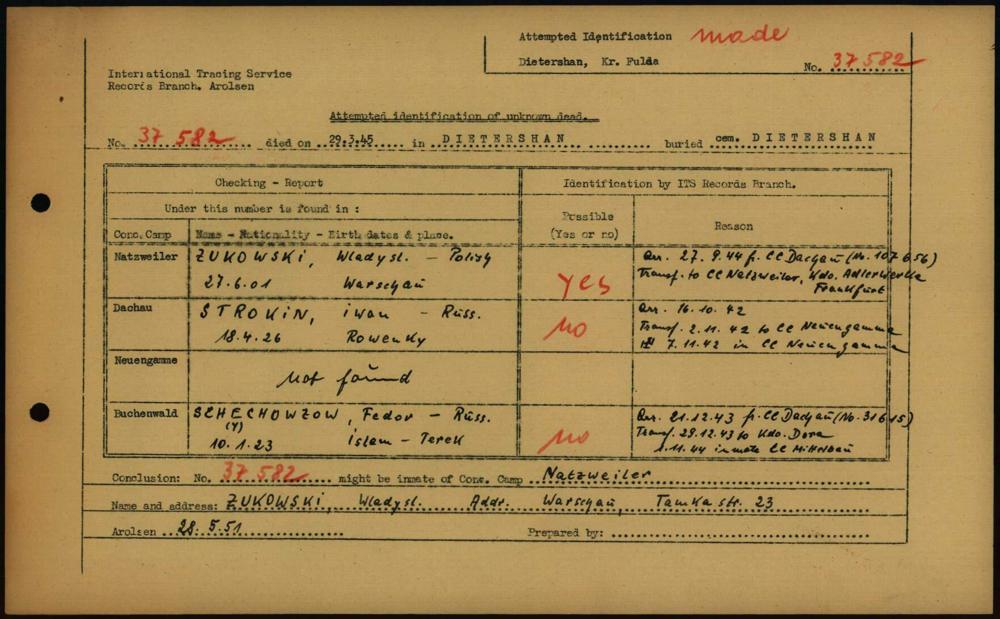 Attempted Identification made
Dietershan, Kr. Fulda
No. 37 582
International Tracing Service
Records Branch. Arolsen
Attempted identification of unknown dead.
No. 37 582 died on 29.3.45 in DIETERSHAN buried cem. DIETERSHAN
Checking - Report
Identification by ITS Records Branch.
Under this number is found in :
Possible
(Yes or no)
Reason
Conc. Camp
Name - Nationality - Birth dates & place.
Natzweiler
ŻUKOWSKI, Wladysl. - Polish
27.6.01 Warschau
yes
arr. 27. 9.44 fr. CC Dachau (No. 107 656)
Transf. to CC Natzweiler, Kdo. Adlerwerke
Frankfurt
Dachau
STROKIN, iwan - Russ.
18.4.26 Rowenky
no
arr. 16.10.42
Transf. 2.11.42 to CC Neuengamme
7.11.42 in CC Neuengamme
Neuengamme
not found
Buchenwald
SCHECHOWZOW, Fedor - Russ.
(Y)
10.1.23 islam - Terek
no
arr. 21.12.43 fr. CC Dachau (No. 31615)
Transf. 29.12.43 to Kdo. Dora
1.11.44 inmate CC Mittelbau
Conclusion: No. 37 582 might be inmate of Conc. Camp Natzweiler
Name and address: ŻUKOWSKI, Wladysl. Addr. Warschau, Tamka str. 23
Arolsen 28. 5.51 Prepared by: